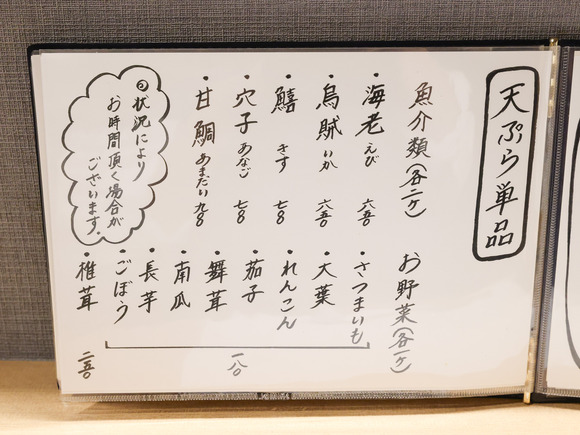 天ぷら単品
魚介類(各二ケ)
・海老 えび 六五〇
・烏賊 いか 六五〇
・鱚 きす 七八〇
・穴子 あなご 七八〇
・甘鯛 あまだい 九八〇
お野菜(各一ケ)
・さつまいも
・大葉
・れんこん
・茄子
・舞茸
・南瓜
・長芋
・ごぼう
一八〇
・椎茸 二五〇
状況により
お時間頂く場合が
ございます。